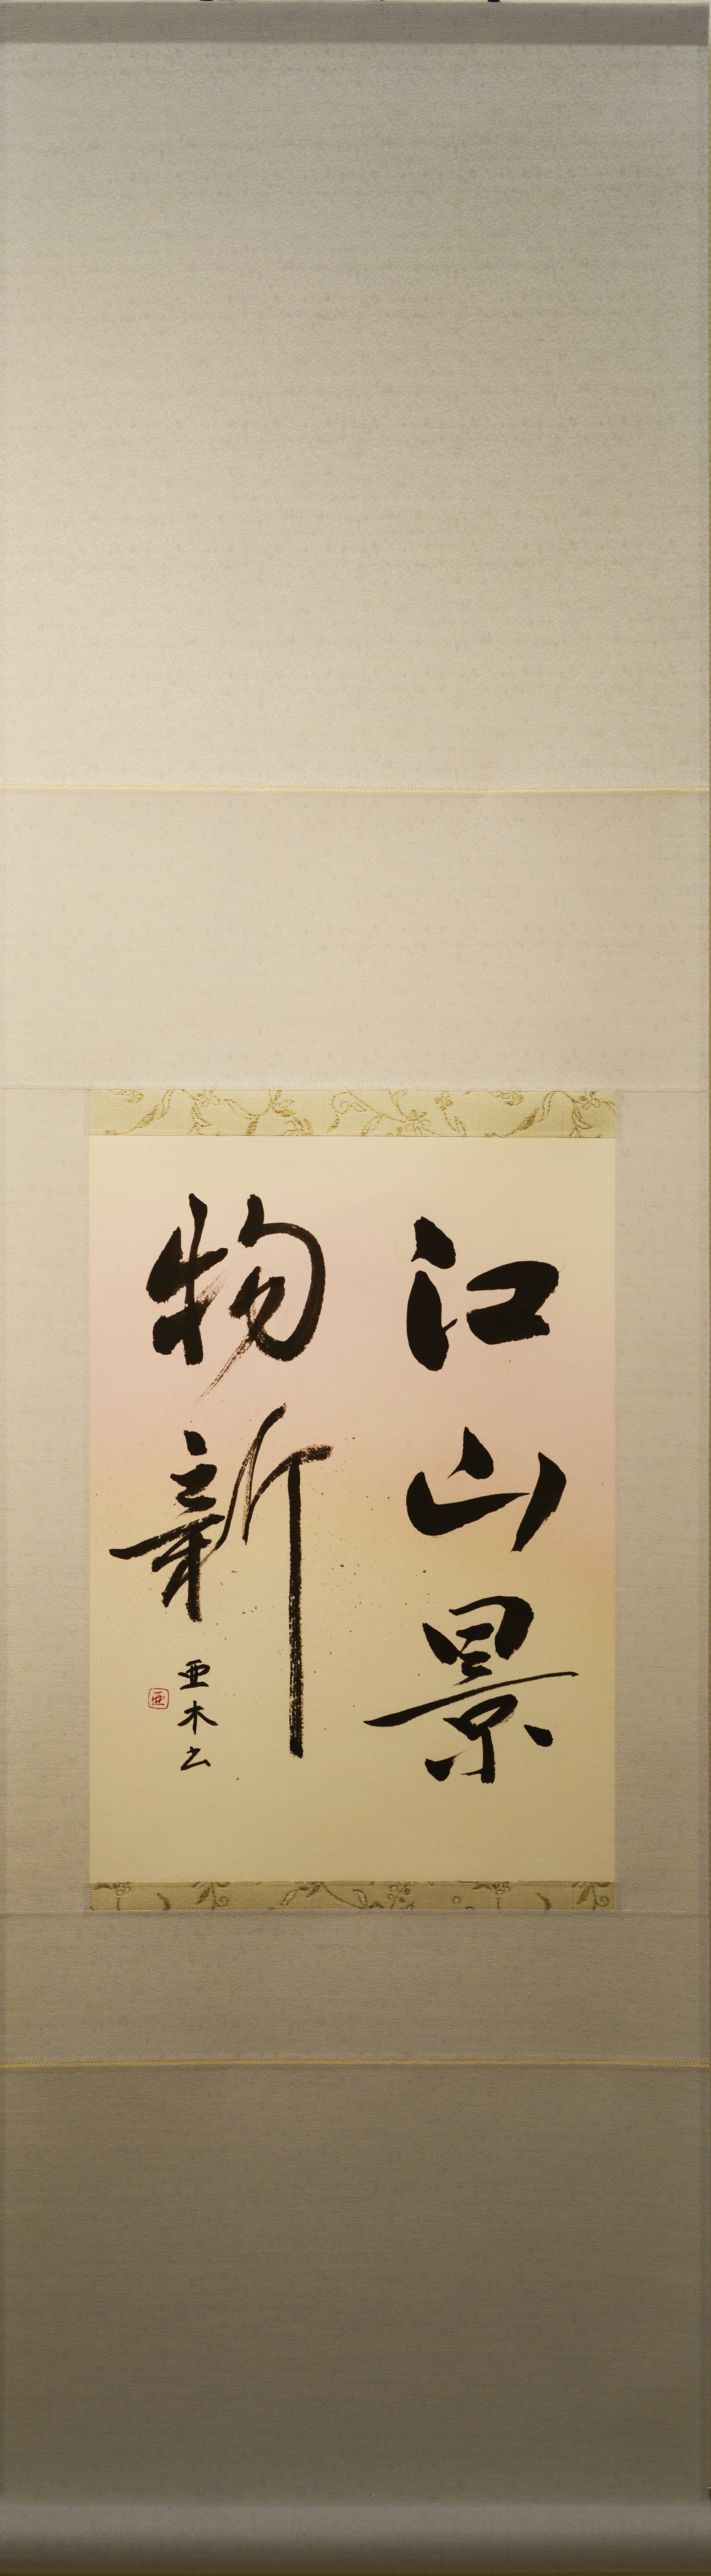 江山景
物新
亜木云
亜